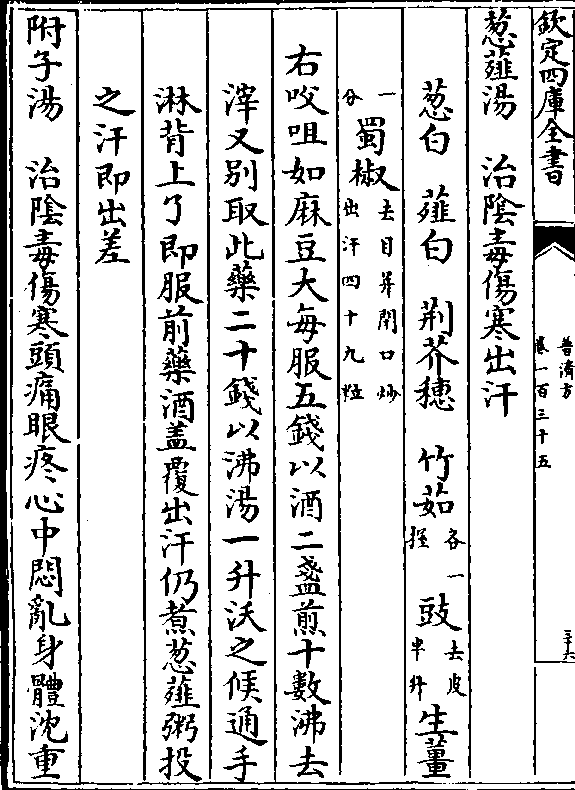 欽定四庫全書
普濟方
卷一百三十五
三十六
葱薤湯 治陰毒傷寒出汗
葱白 薤白 荆芥穗 竹茹各一握 豉去皮半升 生薑
一分 蜀椒去目并閉口炒出汗四十九粒
右㕮咀如麻豆大每服五錢以酒二盞煎十數沸去
滓又别取此藥二十錢以沸湯一升沃之候通手
淋背上了即服前藥酒盖覆出汗仍煮葱薤粥投
之汗即出差
附子湯 治陰毒傷寒頭痛眼疼心中悶亂身體沈重